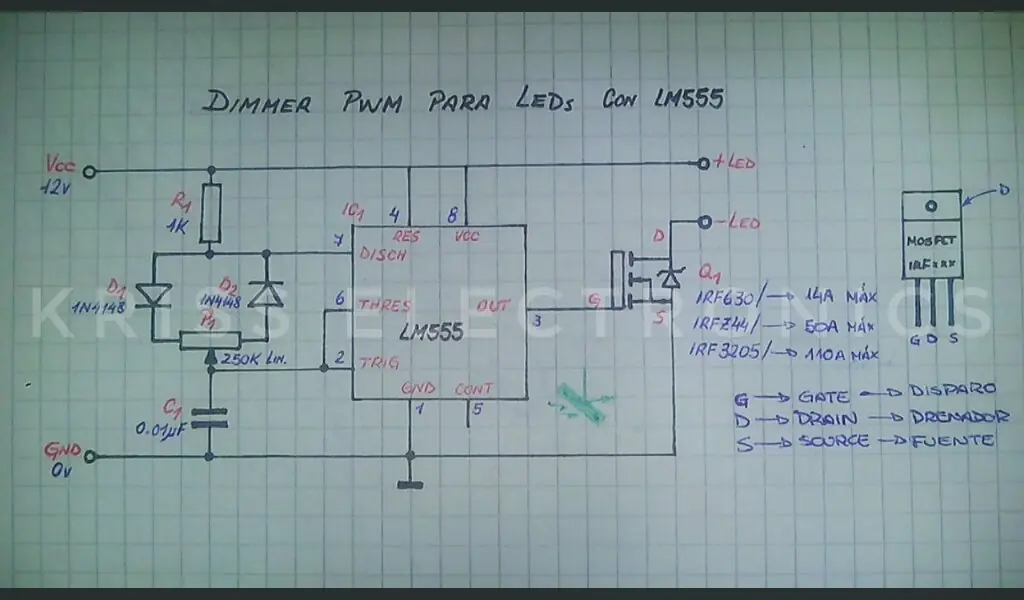 DIMMER PWM PARA LEDs CON LM555
Vcc
12v
+LED
R1
1K
IC1
4
8
RES
VCC
-LED
D
MOSFET
IRFxxx
G D S
7
DISCH
D1
1N4148
D2
1N4148
P1
250K LIN.
6
THRES
OUT
3
LM555
2
TRIG
GND
CONT
1
5
G
D
S
Q1
IRF630/→ 14A MÁX
IRFZ44/→ 50A MÁX
IRF3205/→ 110A MÁX
C1
0.01µF
GND
0v
G → GATE → DISPARO
D → DRAIN → DRENADOR
S → SOURCE → FUENTE
KRIS ELECTRONICS